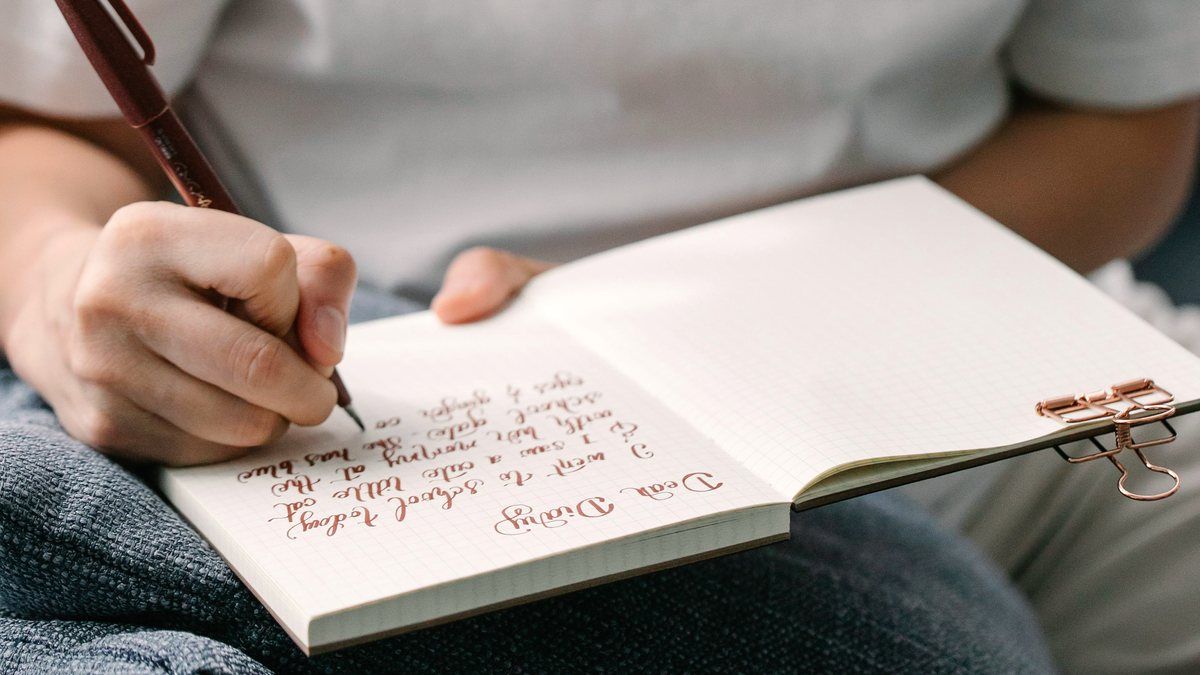 Dear Diary
I went to school today,
& I saw a cute little cat
with her mommy at the
school gate. She has blue
eyes & ginger co